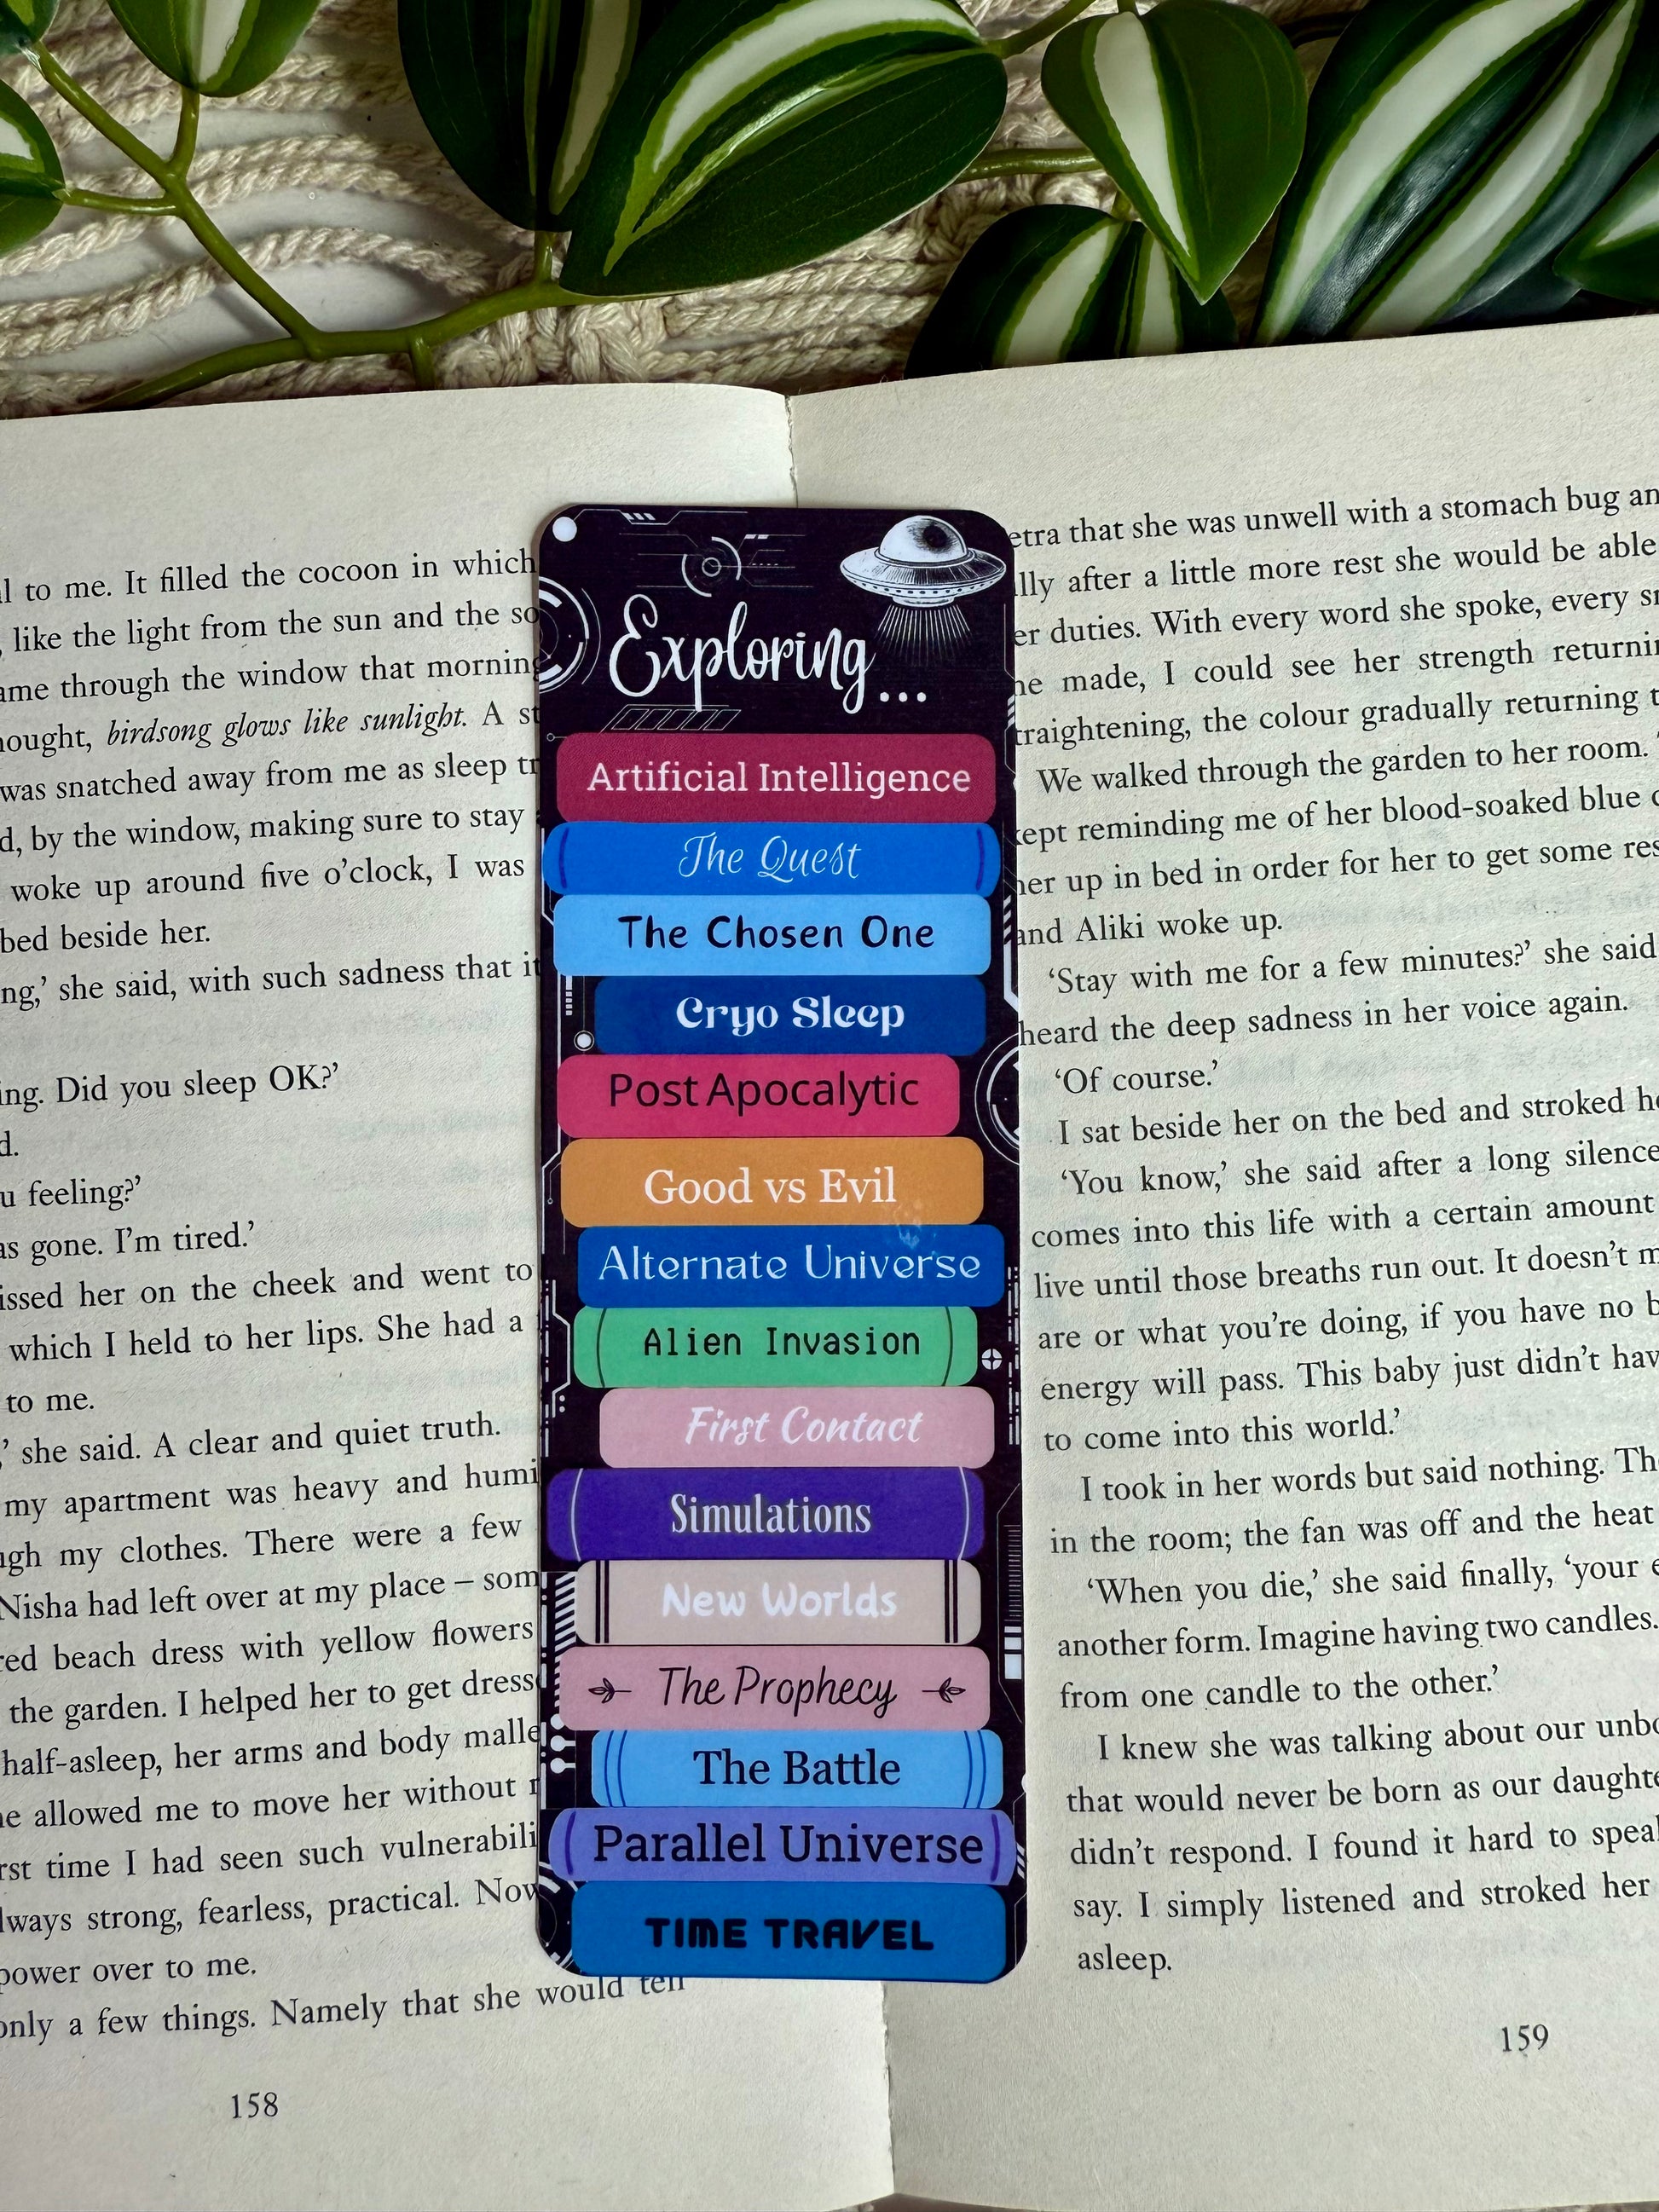 l to me. It filled the cocoon in which
like the light from the sun and the so
ame through the window that morning
nought, birdsong glows like sunlight. A st
was snatched away from me as sleep tr
d, by the window, making sure to stay
woke up around five o’clock, I was
bed beside her.
ng,’ she said, with such sadness that it
ing. Did you sleep OK?’
d.
u feeling?’
as gone. I’m tired.’
issed her on the cheek and went to
which I held to her lips. She had a
to me.
,’ she said. A clear and quiet truth.
my apartment was heavy and humi
ugh my clothes. There were a few
Nisha had left over at my place – som
red beach dress with yellow flowers
the garden. I helped her to get dress
half-asleep, her arms and body malle
ne allowed me to move her without r
rst time I had seen such vulnerabili
lways strong, fearless, practical. Now
power over to me.
only a few things. Namely that she would tell
158
Exploring...
Artificial Intelligence
The Quest
The Chosen One
Cryo Sleep
Post Apocalytic
Good vs Evil
Alternate Universe
Alien Invasion
First Contact
Simulations
New Worlds
The Prophecy
The Battle
Parallel Universe
TIME TRAVEL
etra that she was unwell with a stomach bug an
lly after a little more rest she would be able
er duties. With every word she spoke, every sm
ne made, I could see her strength returnin
traightening, the colour gradually returning t
We walked through the garden to her room.
kept reminding me of her blood-soaked blue
her up in bed in order for her to get some res
and Aliki woke up.
‘Stay with me for a few minutes?’ she said
heard the deep sadness in her voice again.
‘Of course.’
I sat beside her on the bed and stroked he
‘You know,’ she said after a long silence
comes into this life with a certain amount
live until those breaths run out. It doesn’t m
are or what you’re doing, if you have no b
energy will pass. This baby just didn’t hav
to come into this world.’
I took in her words but said nothing. The
in the room; the fan was off and the heat
‘When you die,’ she said finally, ‘your e
another form. Imagine having two candles.
from one candle to the other.’
I knew she was talking about our unbo
that would never be born as our daughte
didn’t respond. I found it hard to speak
say. I simply listened and stroked her
asleep.
159